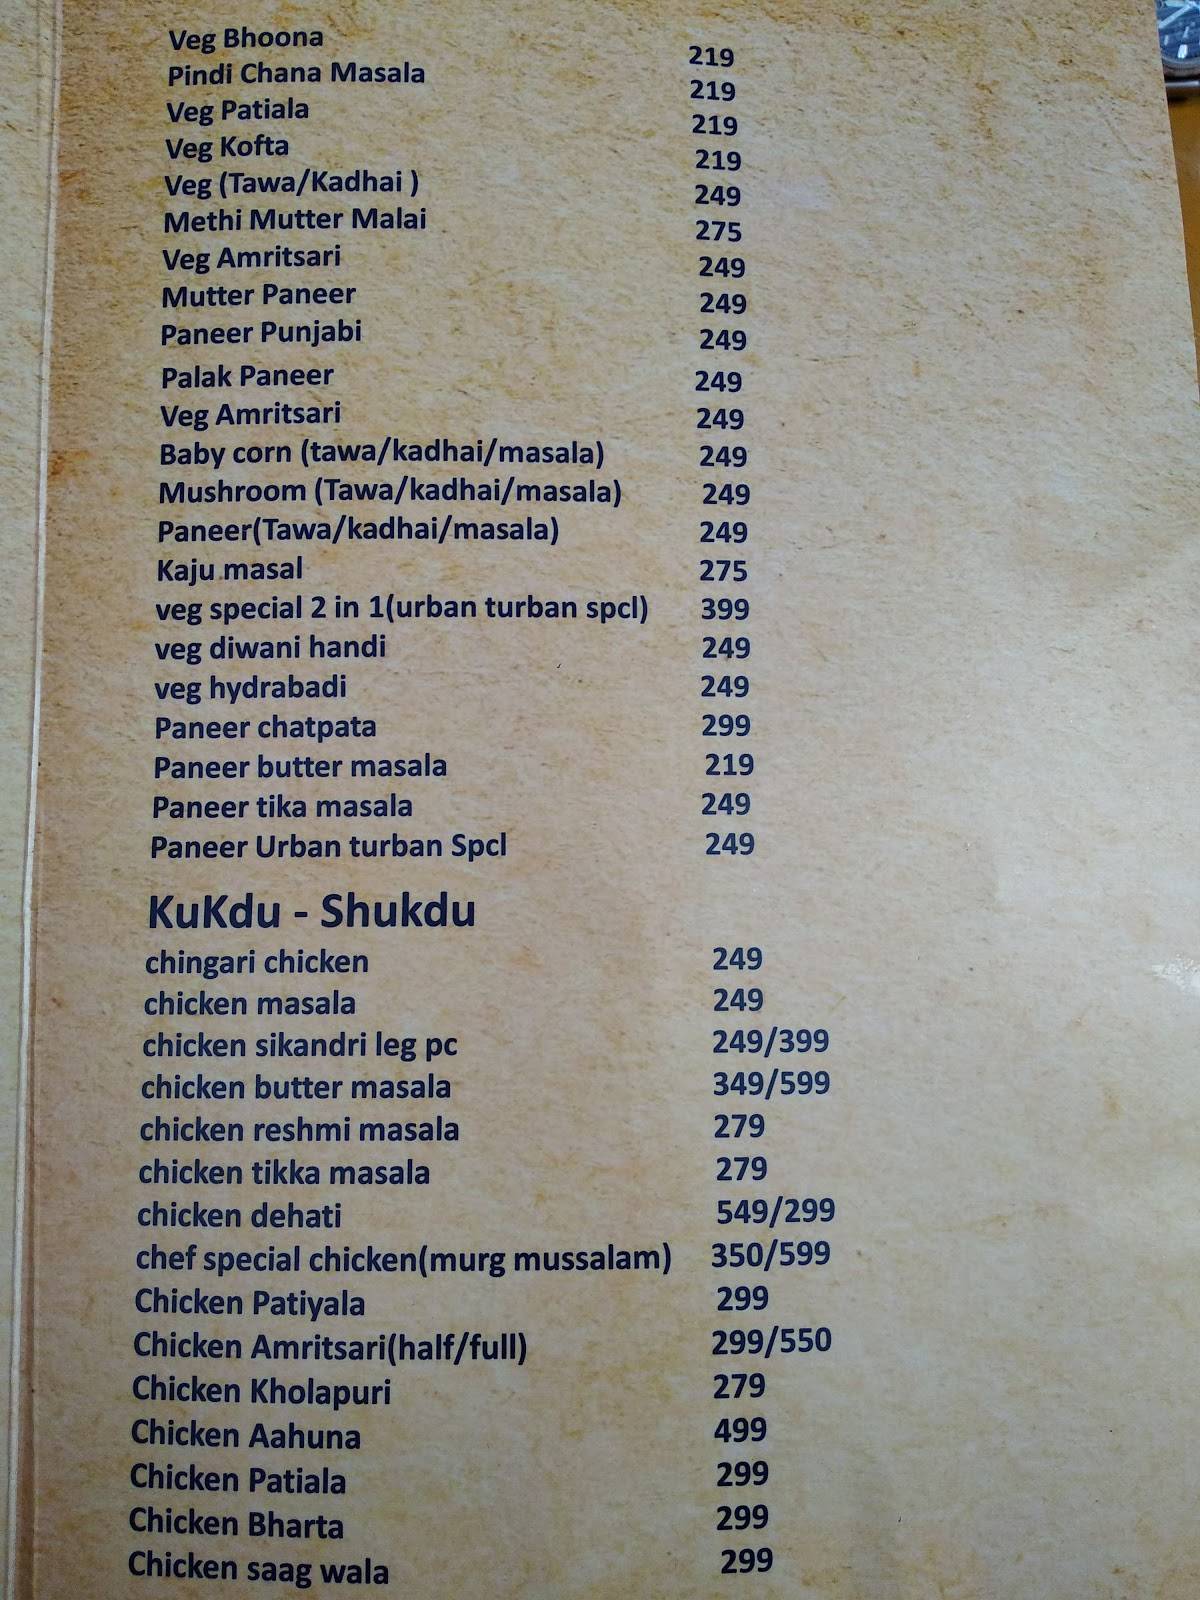 Veg Bhoona 219
Pindi Chana Masala 219
Veg Patiala 219
Veg Kofta 219
Veg (Tawa/Kadhai ) 249
Methi Mutter Malai 275
Veg Amritsari 249
Mutter Paneer 249
Paneer Punjabi 249
Palak Paneer 249
Veg Amritsari 249
Baby corn (tawa/kadhai/masala) 249
Mushroom (Tawa/kadhai/masala) 249
Paneer(Tawa/kadhai/masala) 249
Kaju masal 275
veg special 2 in 1(urban turban spcl) 399
veg diwani handi 249
veg hydrabadi 249
Paneer chatpata 299
Paneer butter masala 219
Paneer tika masala 249
Paneer Urban turban Spcl 249
KuKdu - Shukdu
chingari chicken 249
chicken masala 249
chicken sikandri leg pc 249/399
chicken butter masala 349/599
chicken reshmi masala 279
chicken tikka masala 279
chicken dehati 549/299
chef special chicken(murg mussalam) 350/599
Chicken Patiyala 299
Chicken Amritsari(half/full) 299/550
Chicken Kholapuri 279
Chicken Aahuna 499
Chicken Patiala 299
Chicken Bharta 299
Chicken saag wala 299